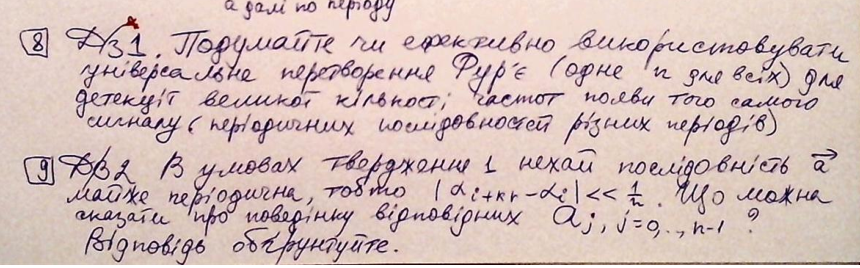 а далі по періоду
8 ДЗ1*. Подумайте чи ефективно використовувати
універсальне перетворення Фур'є (одне n для всіх) для
детекції великої кількості частот появи того самого
сигналу (періодичних послідовностей різних періодів)
9 ДЗ2 В умовах твердження 1 нехай послідовність a⃗
майже періодична, тобто |α_{i+kr} - α_i| << 1/n. Що можна
сказати про поведінку відповідних a_j, j=0,..,n-1?
Відповідь обґрунтуйте.